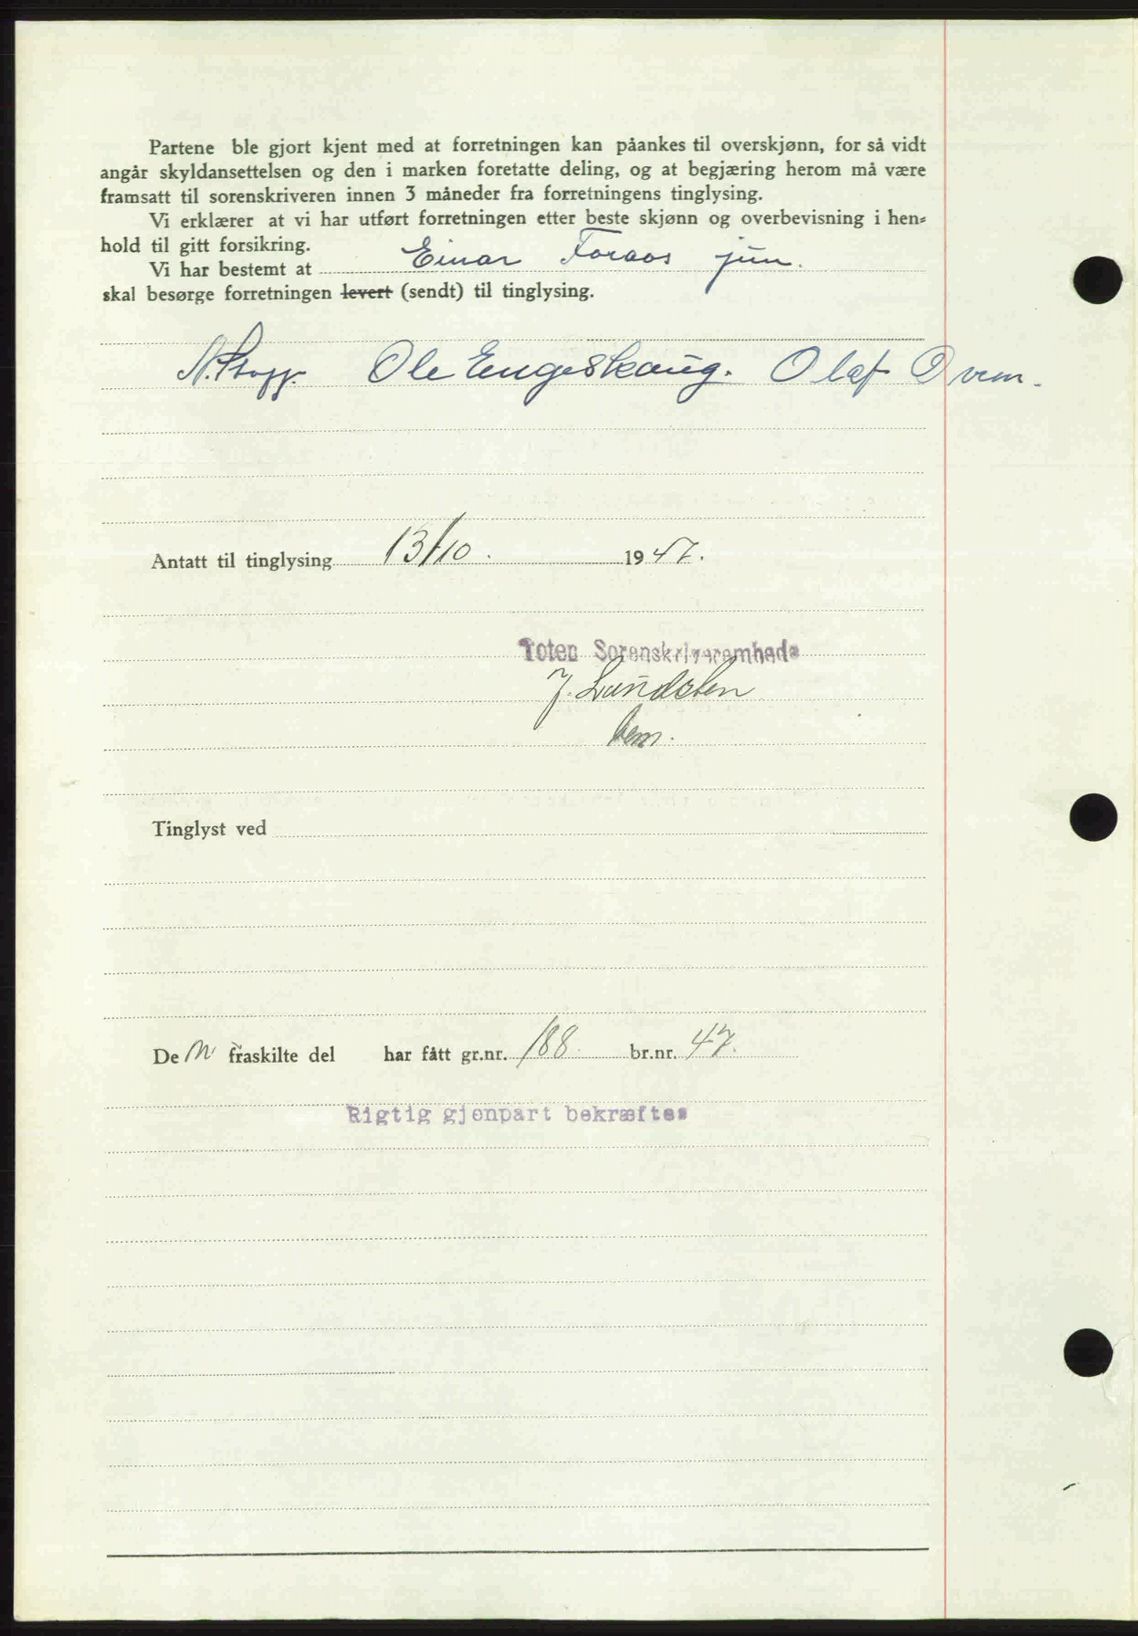 Partene ble gjort kjent med at forretningen kan påankes til overskjønn, for så vidt
angår skyldansettelsen og den i marken foretatte deling, og at begjæring herom må være
framsatt til sorenskriveren innen 3 måneder fra forretningens tinglysing.
Vi erklærer at vi har utført forretningen etter beste skjønn og overbevisning i hen=
hold til gitt forsikring.
Vi har bestemt at Einar Foraos jun.
skal besørge forretningen levert (sendt) til tinglysing.
Ole Engeskaug. Olaf
Antatt til tinglysing 13/10. 1947.
Toten Sorenskriverembede
J. Lundsten
Tinglyst ved
De n fraskilte del har fått gr.nr. 188. br.nr. 47.
Rigtig gjenpart bekræftes